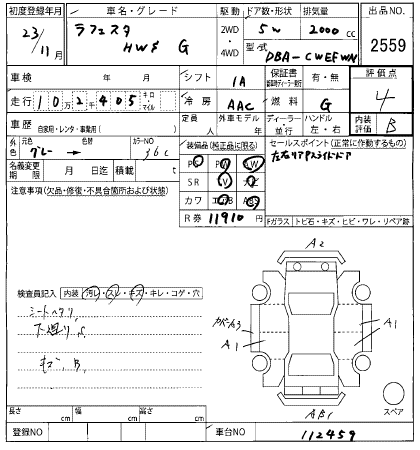 初度登録年月 車名・グレード 駆動 ドア数・形状 排気量 出品NO.
23/11月 ラフェスタ HWS G 2WD・4WD 5W 2000cc 2559
型式 DBA-CWEFWN
車検 年 月 シフト IA 保証書 有・無 評価点
走行 10万2千405キロ・マイル 冷房 AAC 燃料 G 4
車歴 自家用・レンタ・事業用( ) 定員 人 外車モデル 年 ディーラー・並行 ハンドル 左・右 内装評価 B
外色 元色 グレー 色替 カラーNO 36C 装備品(純正品に限る) セールスポイント(正常に作動するもの)
名義変更期限 月 日迄 積載 t PS PW SW 左右リアスライドドア
注意事項(欠品・修復・不具合箇所および状態) SR ナビ カワ エアB ABS
R券 11910円 Fガラス トビ石・キズ・ヒビ・ワレ・リペア跡
A2
検査員記入 内装 汚レ・スレ・キズ・キレ・コゲ・穴
シートヘタリ
下廻りS
キズ、B
A1 A1
スペア
長さ cm 幅 cm 高さ cm
登録NO 車台NO 112459